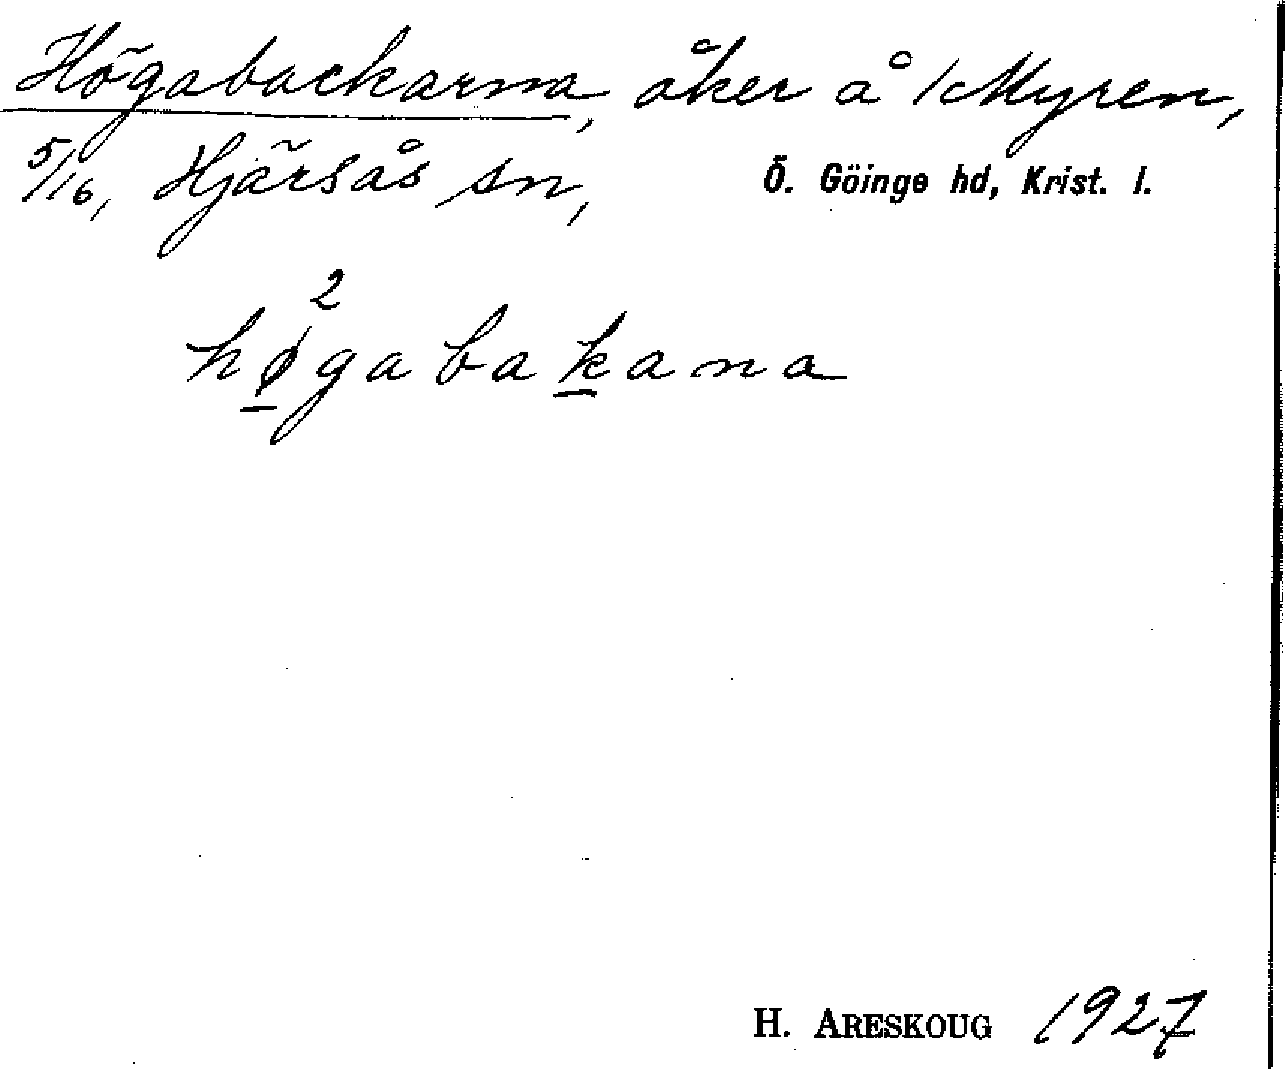 Högabackarna, åker å /Myren,
5/16, Hjärsås sn, Ö. Göinge hd, Krist. l.
2
høgabakana
H. ARESKOUG 1927